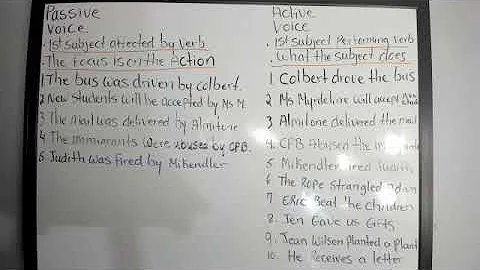 Passive
Voice
. 1st subject affected by verb
. The focus is on the Action
1 The bus was driven by colbert.
2 New students will be accepted by Ms M.
3 The mail was delivered by Almitone
4 The immigrants were abused by CPB.
5 Judith was fired by Mikendler
Active
Voice
. 1st subject Performing verb
. what the subject does
1 Colbert drove the bus
2 Ms Myrdeline will accept
3 Almitone delivered the mail
4. CPB Abused the
5 Mikendler fired Judith
6 The Rope strangled
7 Eric Beat the children
8 Jen Gave us Gifts
9. Jean Wilson Planted a Plant
10. He Receives a letter